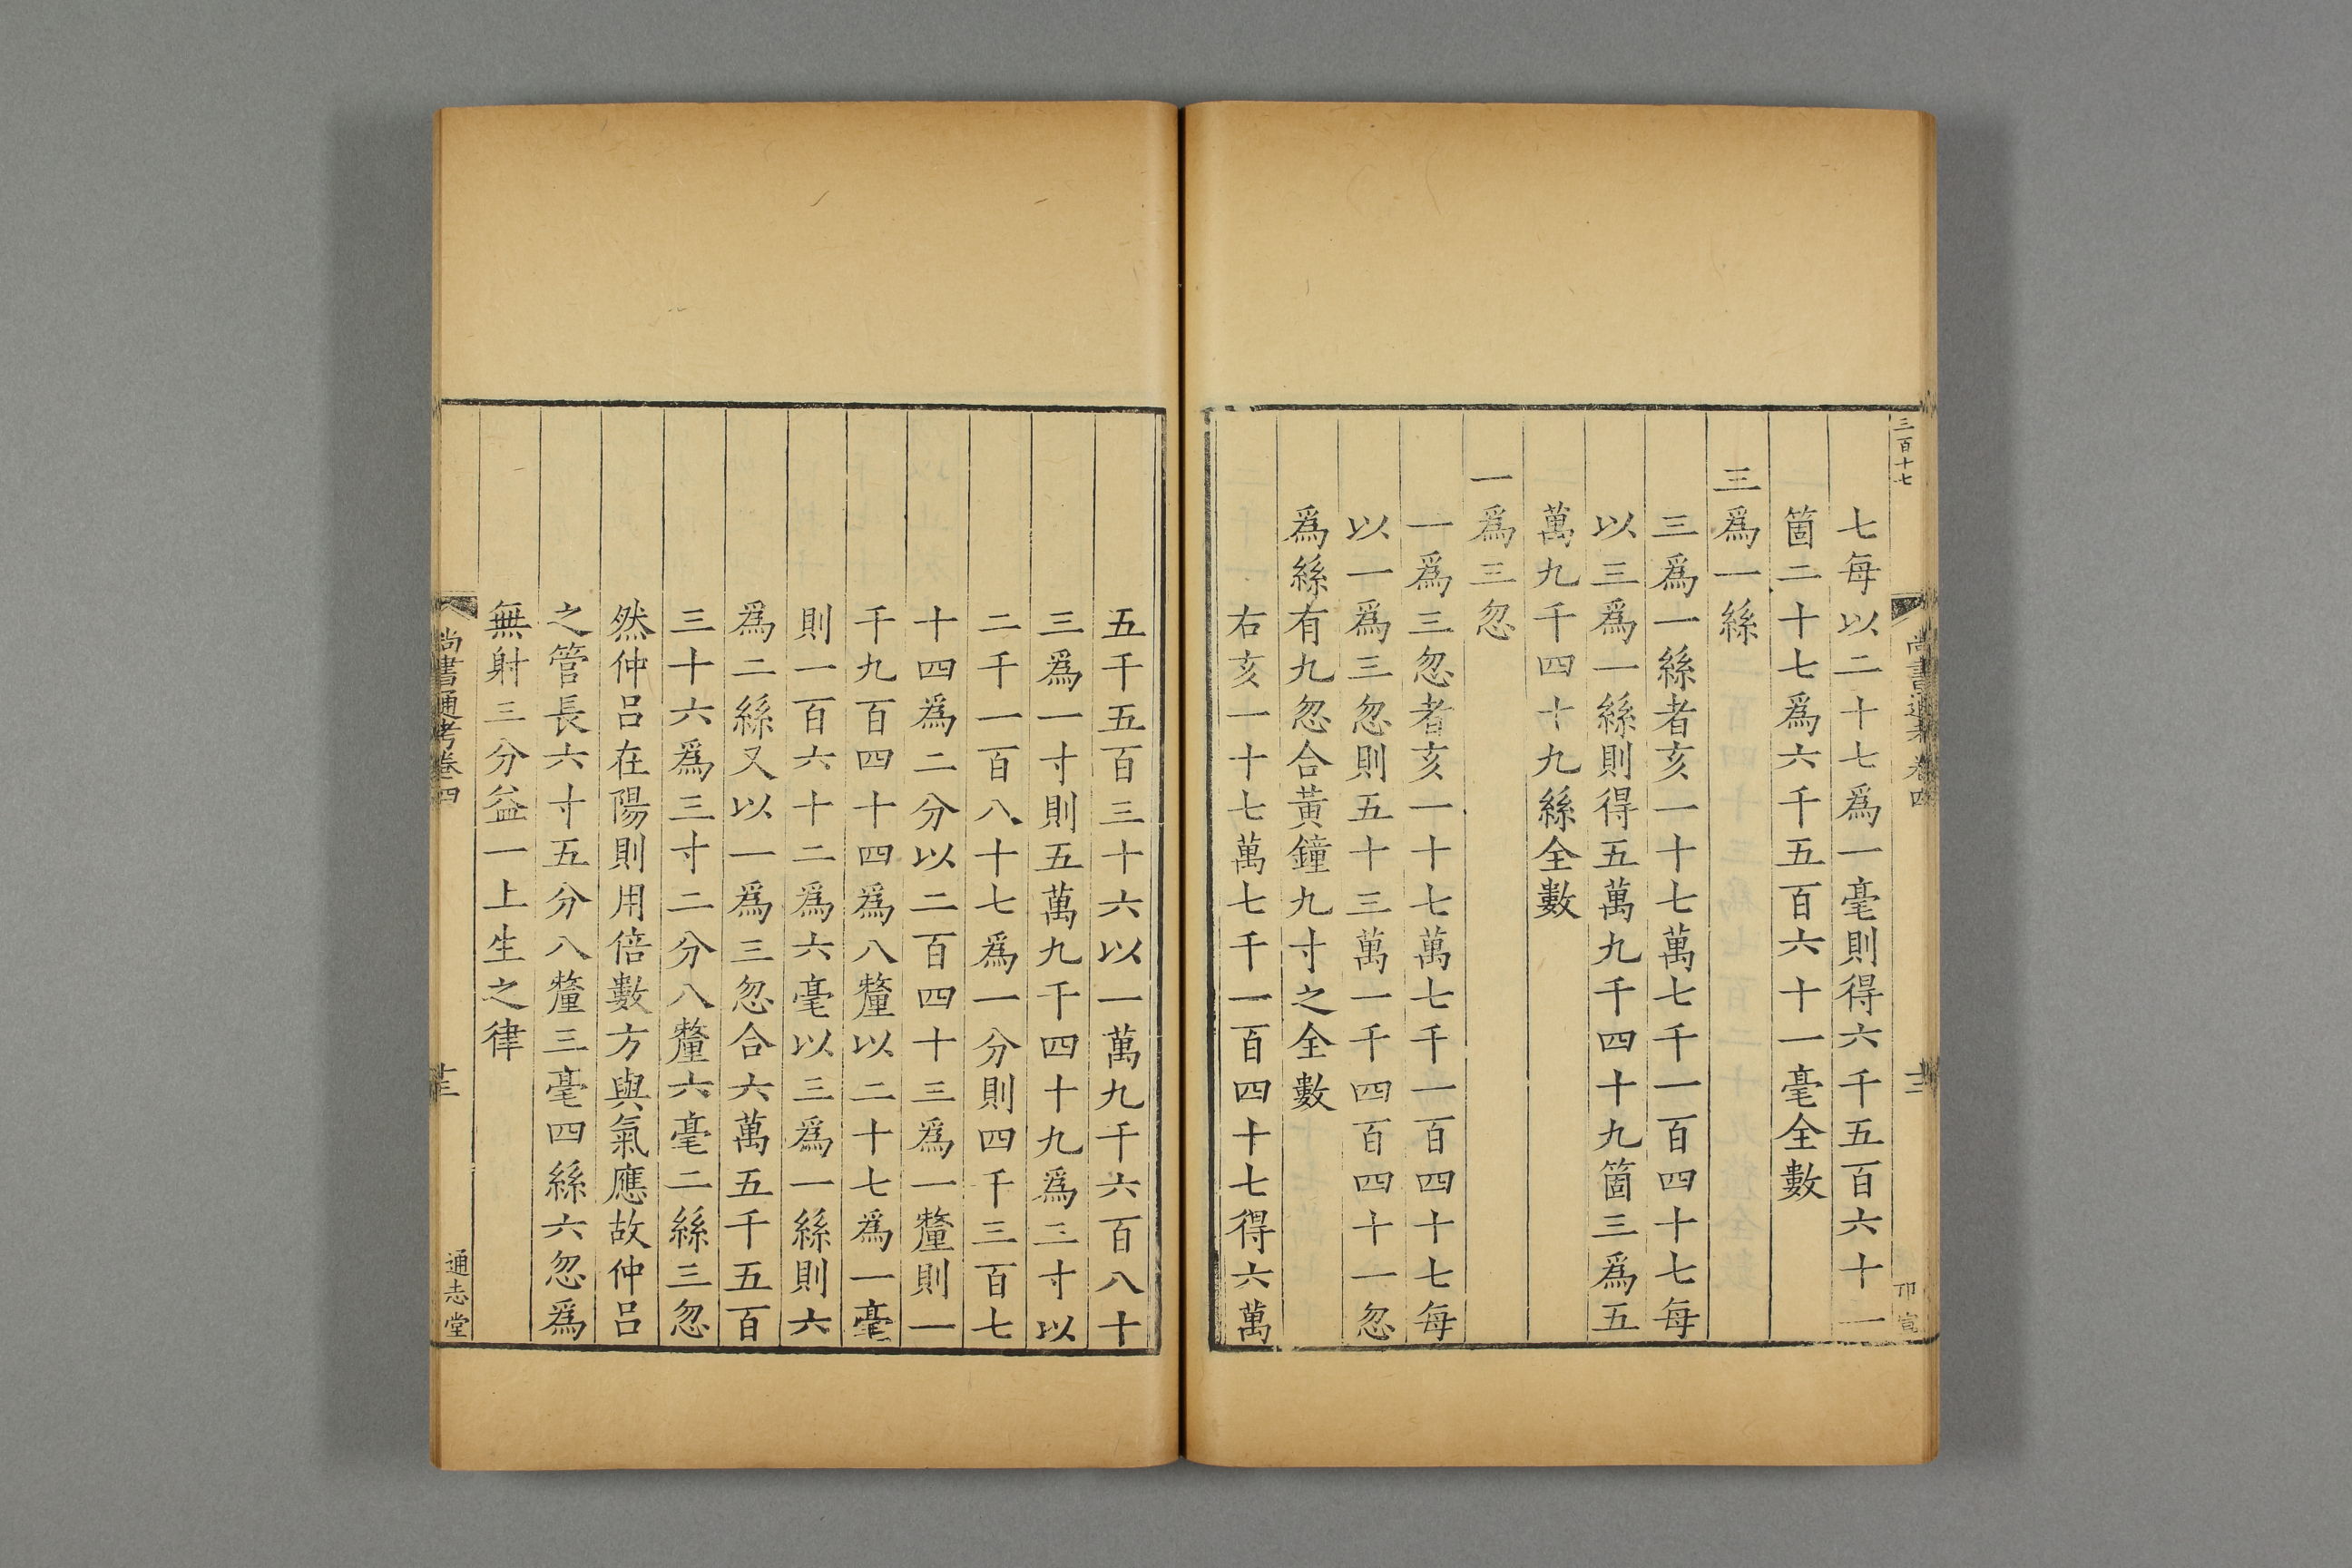 三百十七
尚書通考卷四
七每以二十七爲一毫則得六千五百六十一
箇二十七爲六千五百六十一毫全數
三爲一絲
三爲一絲者亥一十七萬七千一百四十七每
以三爲一絲則得五萬九千四十九箇三爲五
萬九千四十九絲全數
一爲三忽
一爲三忽者亥一十七萬七千一百四十七每
以一爲三忽則五十三萬一千四百四十一忽
爲絲有九忽合黃鐘九寸之全數
右亥一十七萬七千一百四十七得六萬
五千五百三十六以一萬九千六百八十
三爲一寸則五萬九千四十九爲三寸以
二千一百八十七爲一分則四千三百七
十四爲二分以二百四十三爲一釐則一
千九百四十四爲八釐以二十七爲一毫
則一百六十二爲六毫以三爲一絲則六
爲二絲又以一爲三忽合六萬五千五百
三十六爲三寸二分八釐六毫二絲三忽
然仲呂在陽則用倍數方與氣應故仲呂
之管長六寸五分八釐三毫四絲六忽爲
無射三分益一上生之律
尚書通考卷四
通志堂